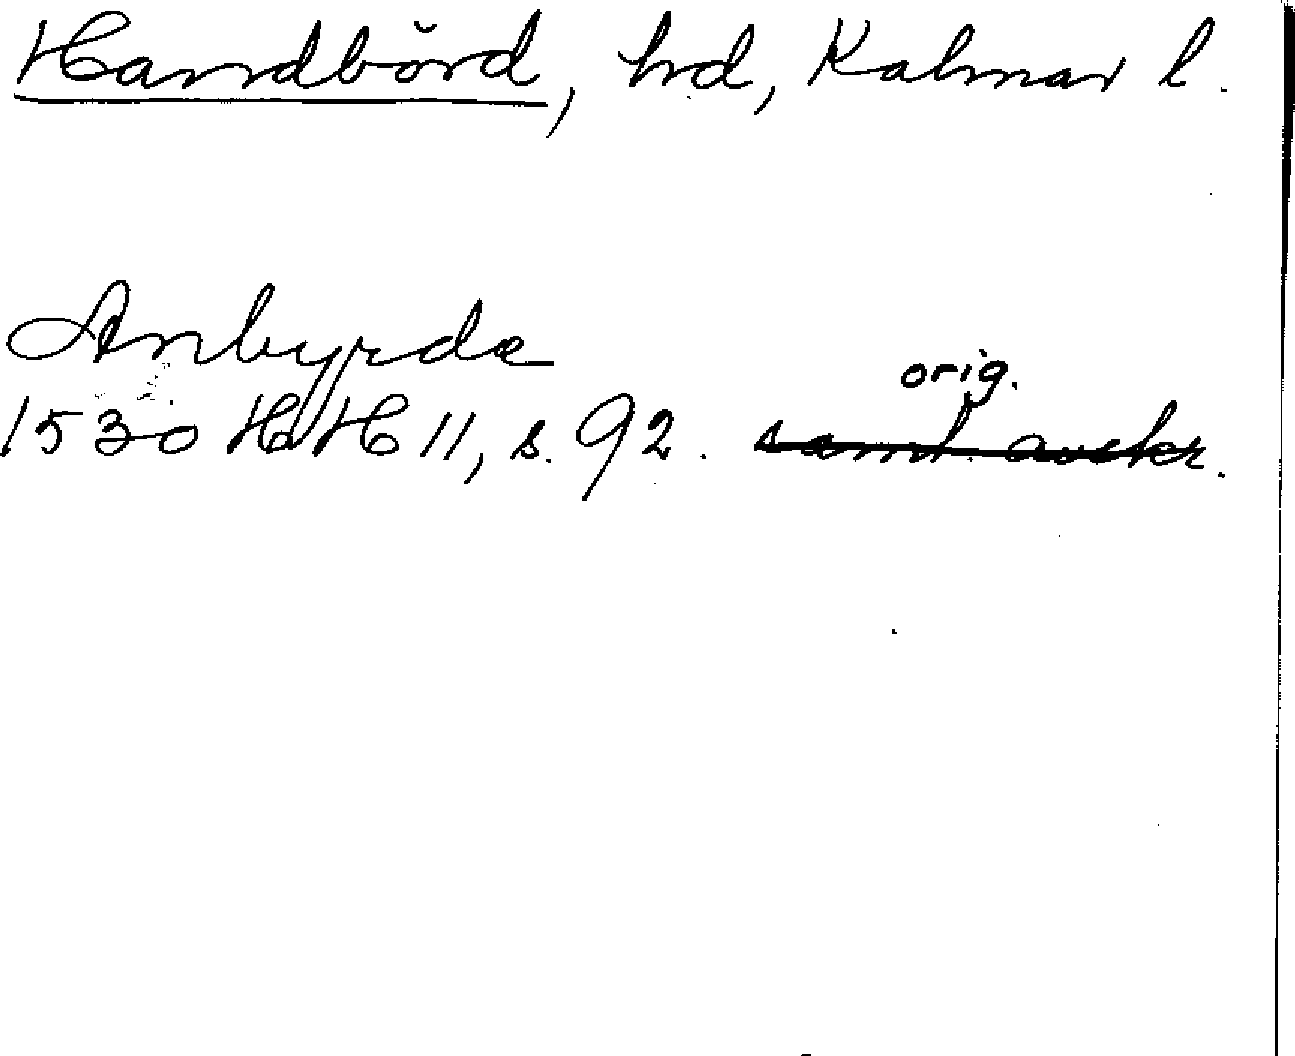 Handbörd, hd, Kalmar l.
Anbyrda
orig.
1530 HH 11, s. 92. samt. avskr.